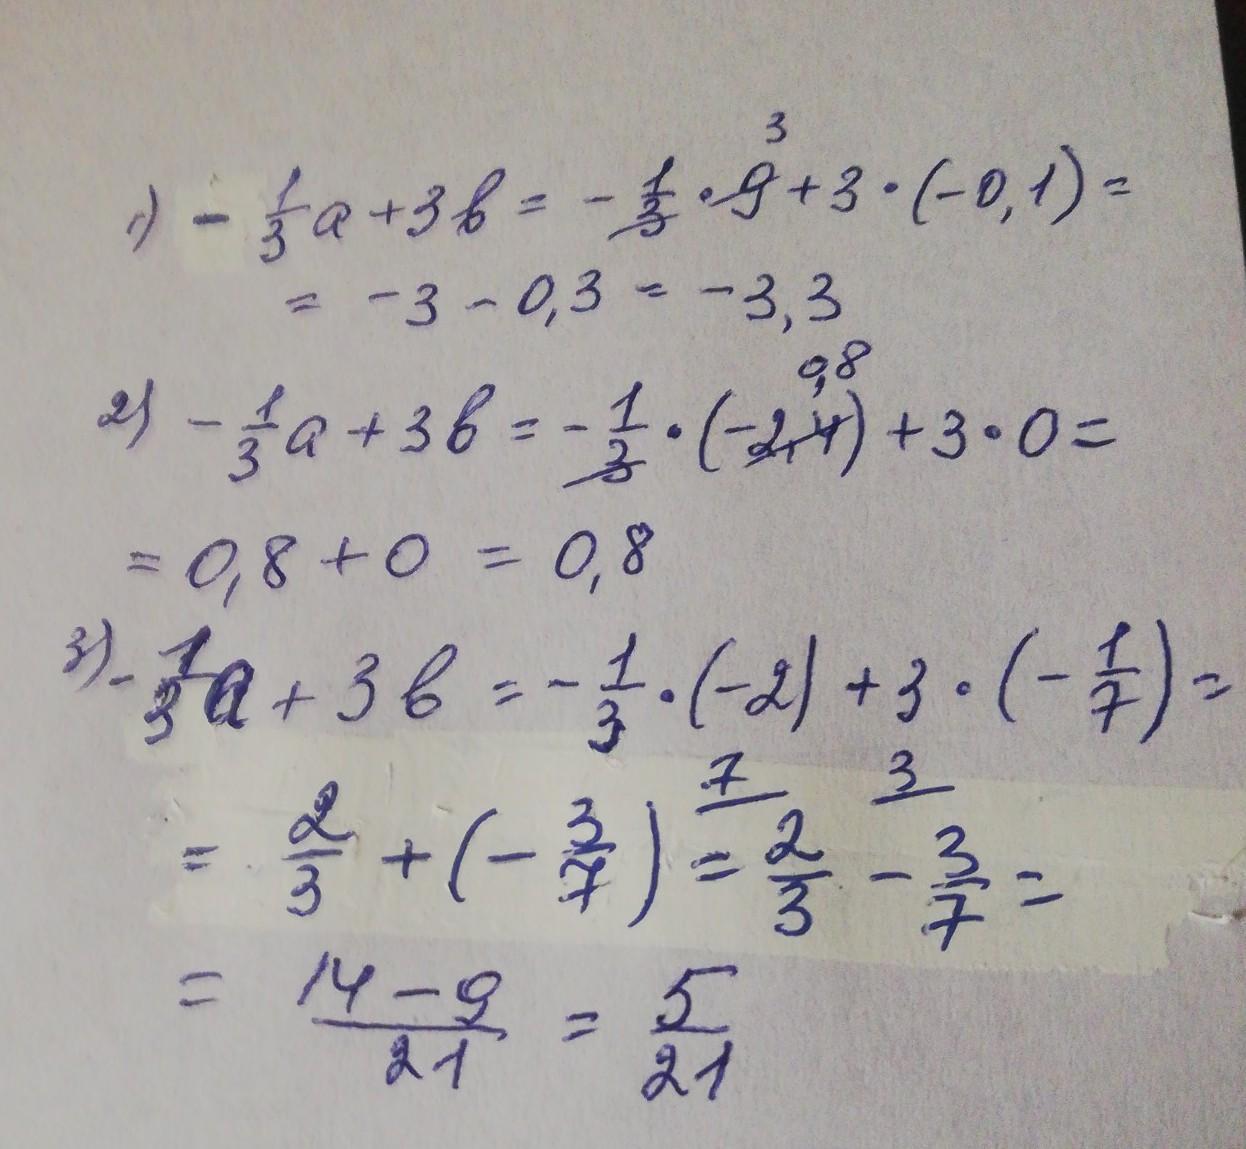 3
1) - 1/3 a + 3b = - 1/3 · 9 + 3 · (-0,1) =
= -3 - 0,3 = -3,3
0,8
2) - 1/3 a + 3b = - 1/3 · (-2,4) + 3 · 0 =
= 0,8 + 0 = 0,8
3) - 1/3 a + 3b = - 1/3 · (-2) + 3 · (- 1/7) =
7 3
= 2/3 + (- 3/7) = 2/3 - 3/7 =
= 14 - 9/21 = 5/21